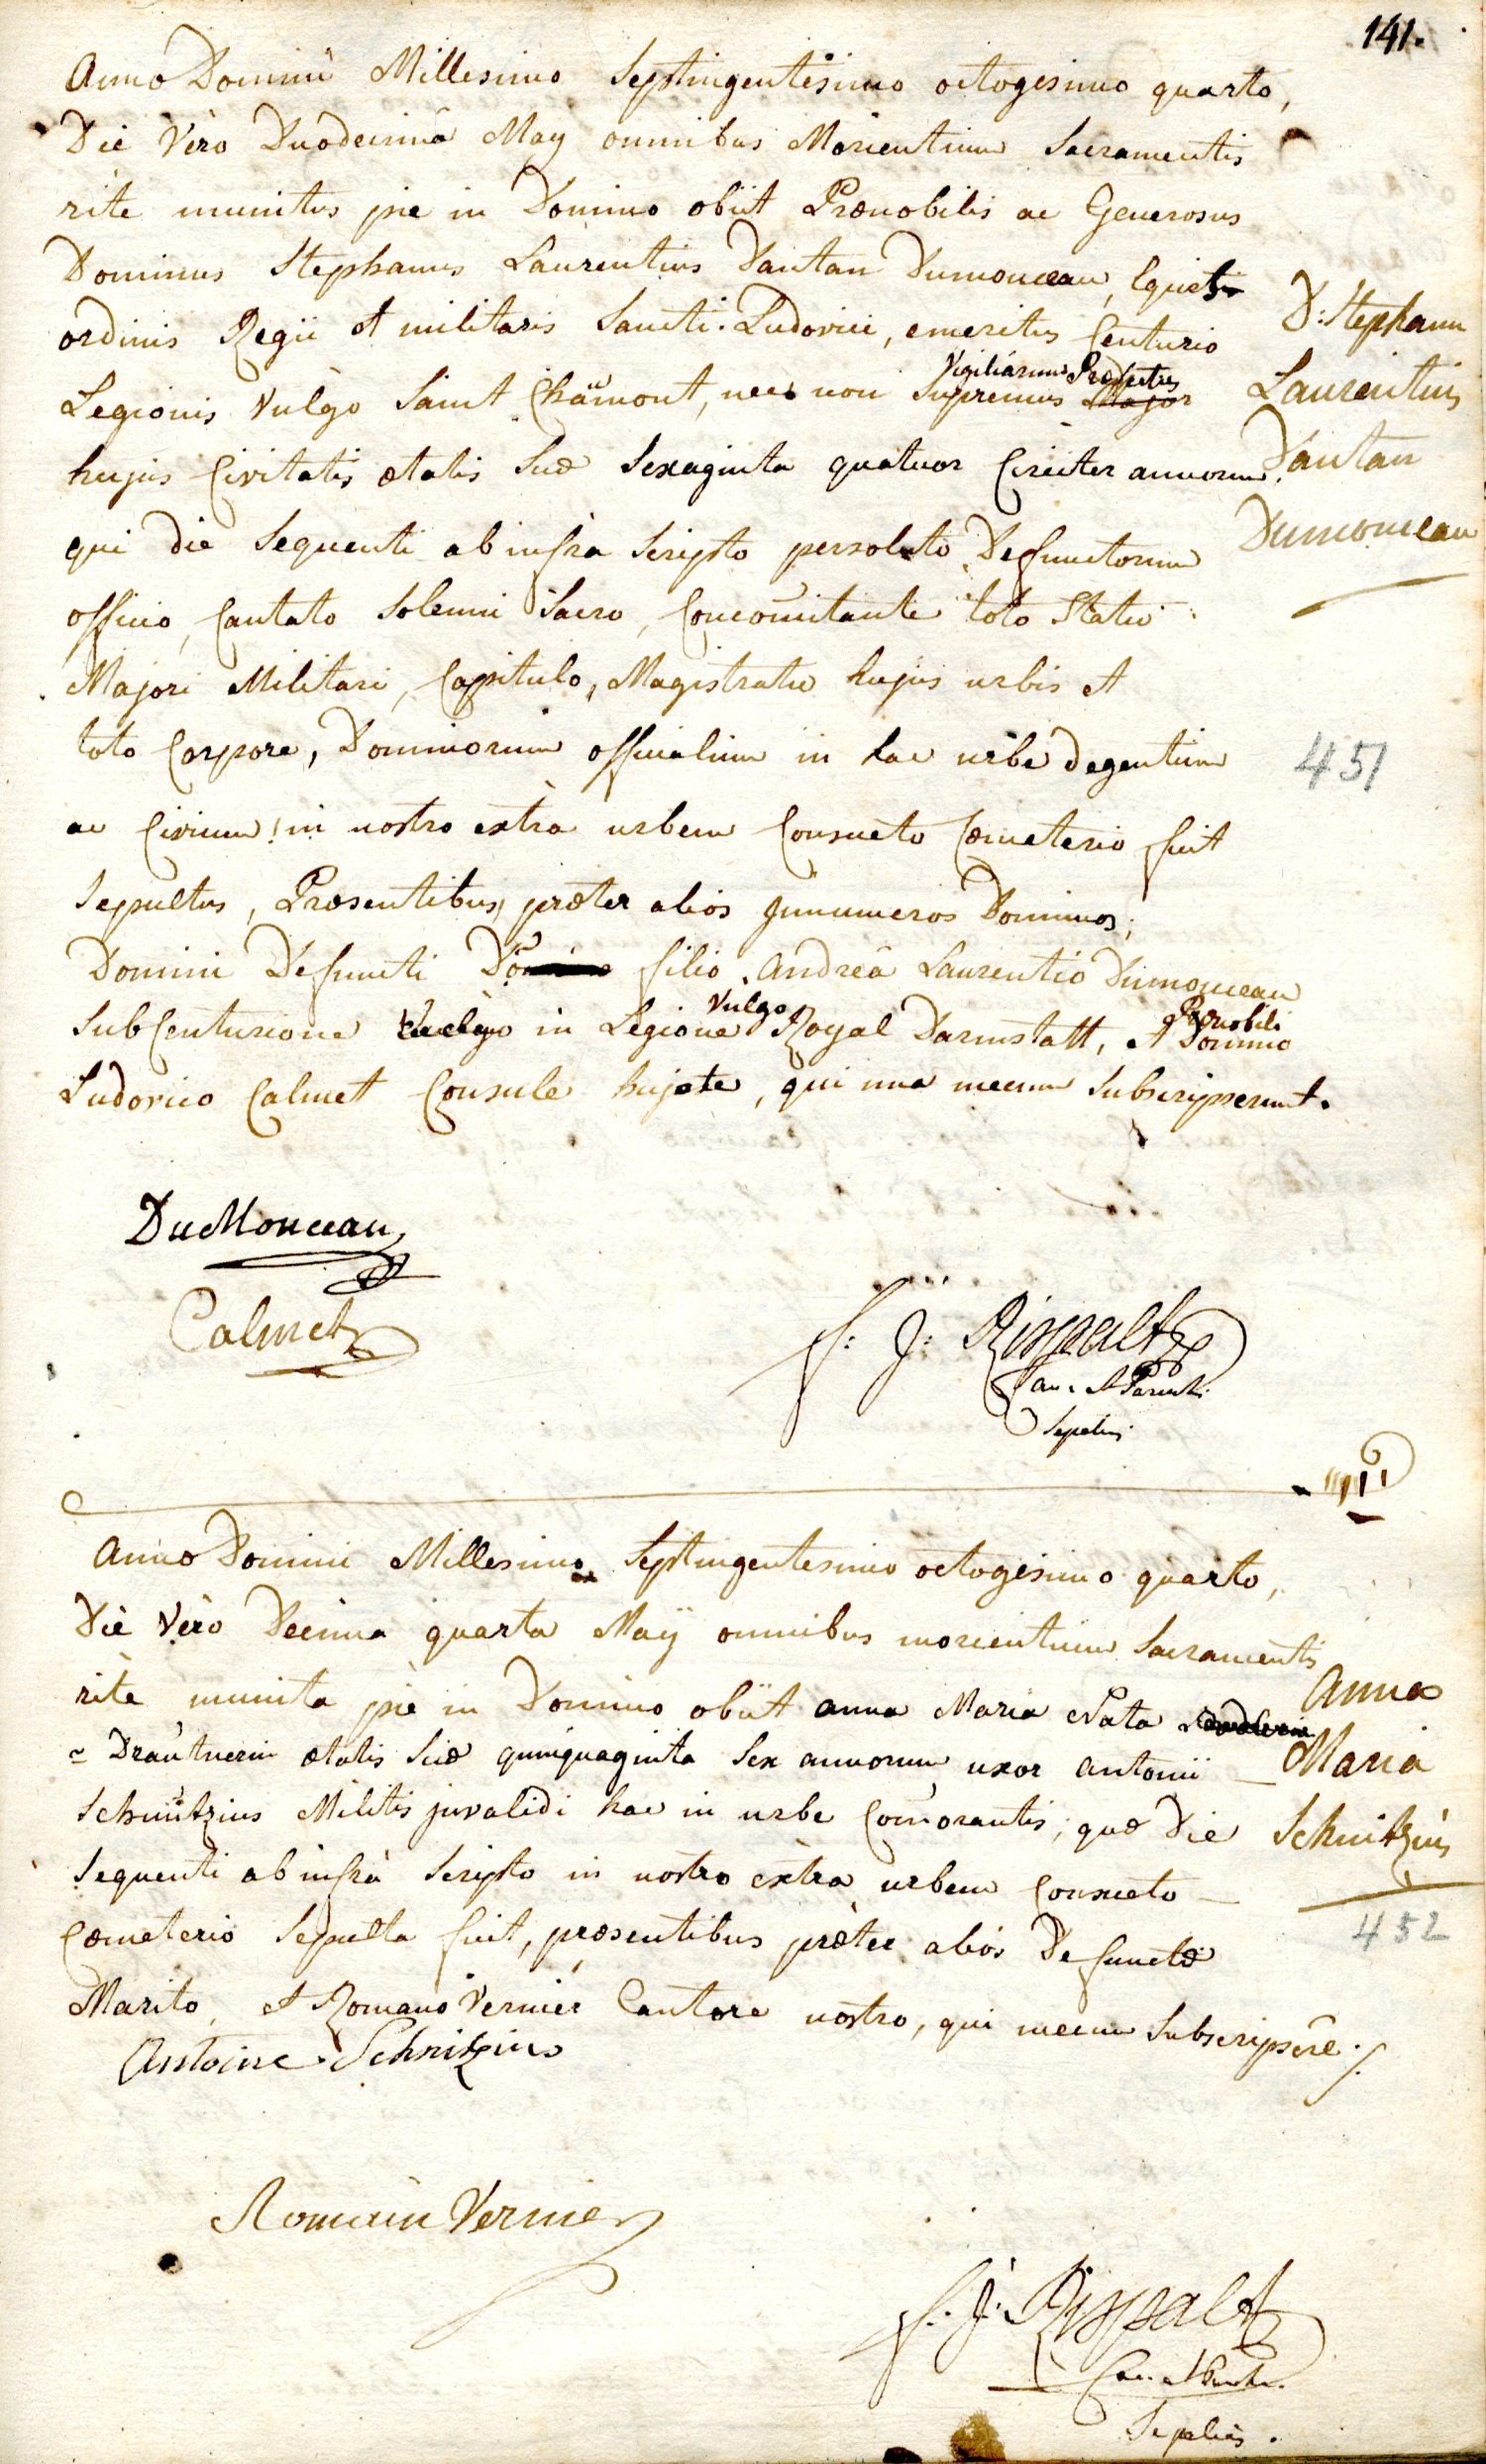 141.
Anno Domini Millesimo Septingentesimo octogesimo quarto,
Die Vero Duodecimâ May omnibus Morientium Sacramentis
rite munitus pie in Domino obiit Prænobilis ac Generosus
Dominus Stephanus Laurentius Dautan Dumonceau, Equestris
ordinis Regii et militaris Sancti Ludovici, emeritus Centurio
Vigiliarum Præfectus
Legionis Vulgo Saint Chamont, nec non Supremus Major
hujus Civitatis ætatis suæ Sexaginta quatuor Circiter annorum,
D: Stephanus
Laurentius
Dautan
Dumonceau
qui die Sequenti ab infra Scripto persoluto Defunctorum
officio, Cantato Solemni Sacro, Concomitante toto Statu
Majori Militari, Capitulo, Magistratu hujus urbis et
toto Corpore, Dominorum officialium in hac urbe degentium
451
ac Civium! in nostro extra urbem Consueto Cæmeterio fuit
Sepultus, Præsentibus, præter alios Innumeros Dominos,
Domini Defuncti filio Andreâ Laurentio Dumonceau
Vulgo Prænobili
SubCenturione in Legione Royal Darmstatt, et Domino
Ludovico Calmet Consule hujate, qui una mecum Subscripserunt.
DuMonceau
Calmet
f: J: Rispalt
Can. et Paroch.
Sepeliens
Anno Domini Millesimo Septingentesimo octogesimo quarto,
Die Vero Decima quarta Maÿ omnibus morientium Sacramentis
rite munita piè in Domino obiit anna Maria Nata
= Drautnerin ætatis suæ quinquaginta Sex annorum uxor Antonii
Schnitzius Militis invalidi hac in urbe Commorantis, quæ Die
Anna
Maria
Schnitzius
Sequenti ab infrà Scripto in nostro extra urbem Consueto
452
Cæmeterio Sepulta fuit, præsentibus præter alios Defunctæ
Marito, et Romano Vernier Cantore nostro, qui mecum Subscripsêre ./.
Antoine Schnitzius
Romain Vernier
f. J. Rispalt
Can. et Paroch.
Sepeliens.